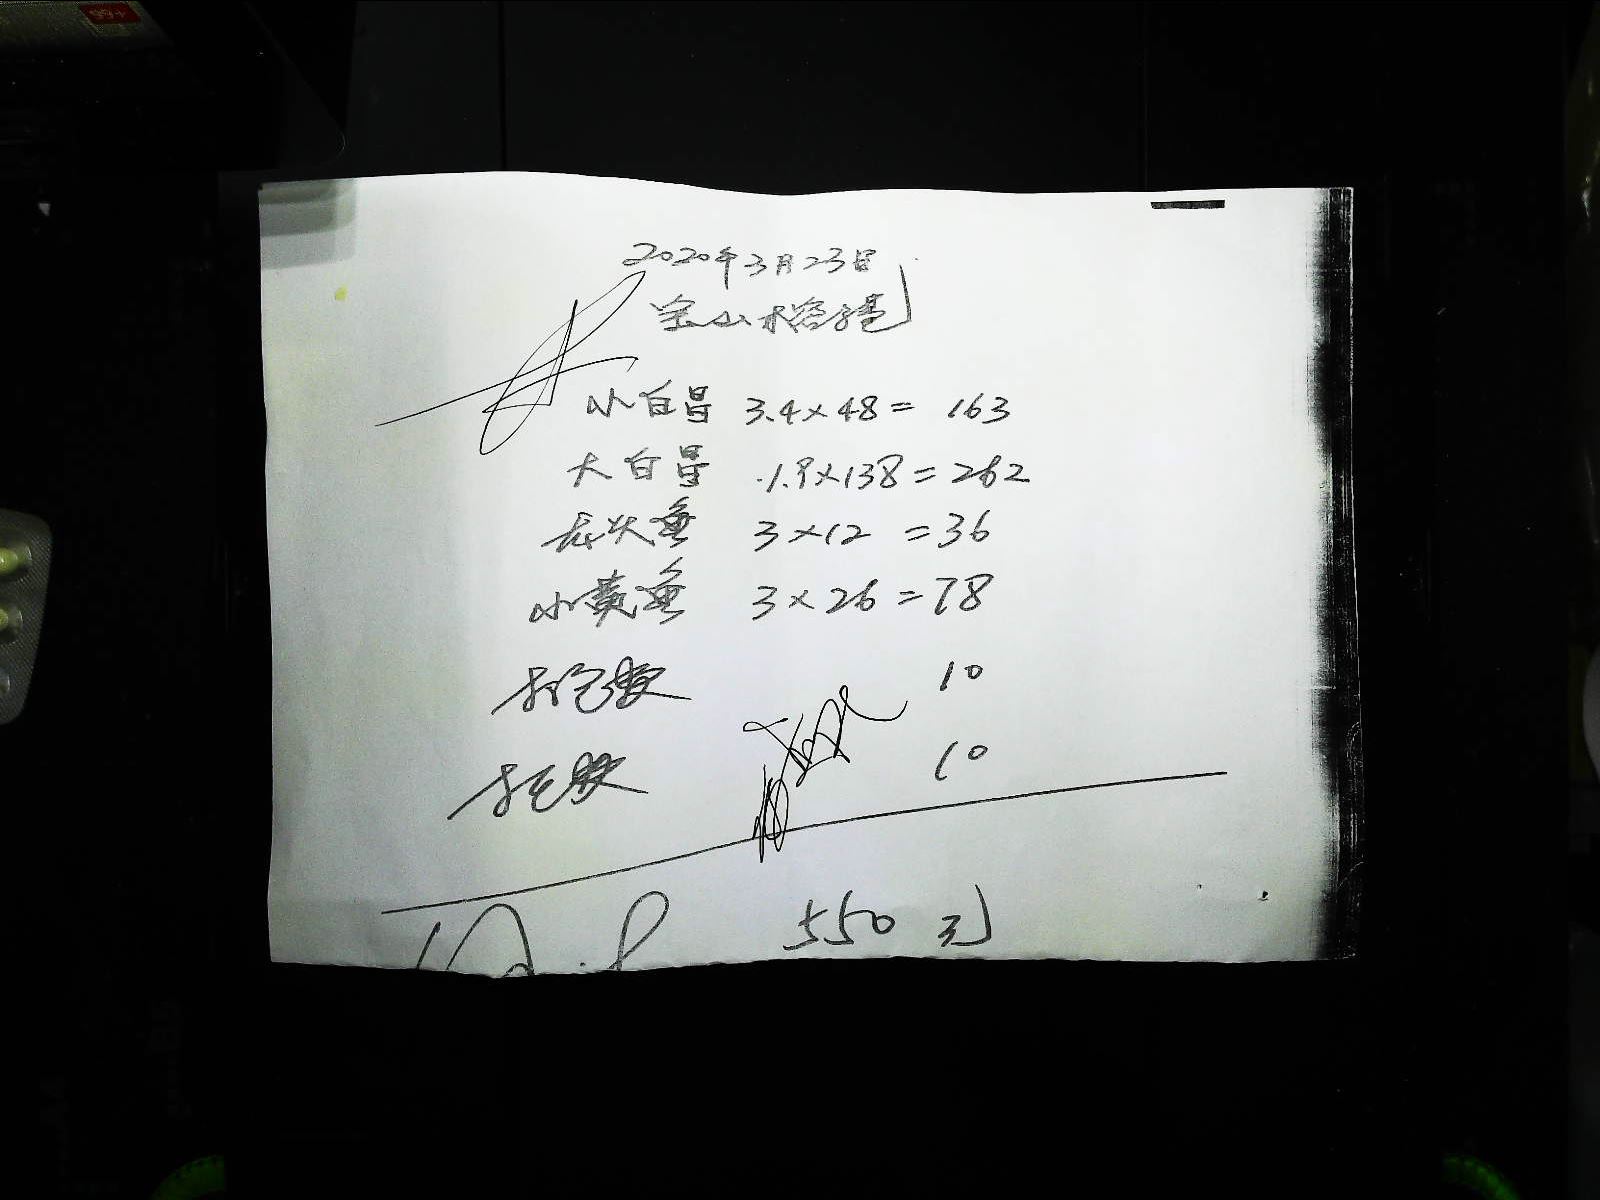 99+
2020年3月23日
宝山木格
小白昌 3.4×48= 163
大白昌 1.9×138=262
龙头鱼 3×12 =36
小黄鱼 3×26=78
打包费 10
10
550元